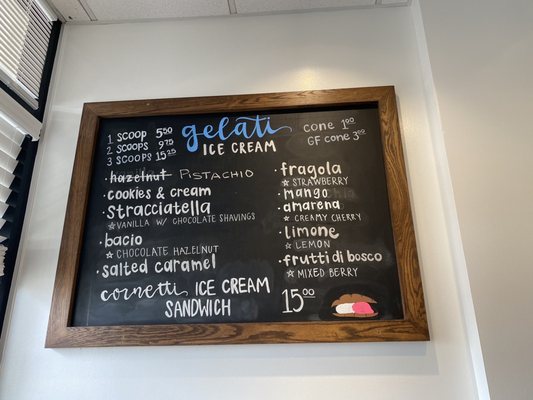 gelati
ICE CREAM
1 SCOOP 5.50
2 SCOOPS 9.75
3 SCOOPS 15.25
CONE 1.00
GF CONE 3.00
· hazelnut PISTACHIO
· cookies & cream
· stracciatella
☆ VANILLA W/ CHOCOLATE SHAVINGS
· bacio
☆ CHOCOLATE HAZELNUT
· salted caramel
· fragola
☆ STRAWBERRY
· mango
· amarena
☆ CREAMY CHERRY
· limone
☆ LEMON
· frutti di bosco
☆ MIXED BERRY
cornetti ICE CREAM
SANDWICH
15.00